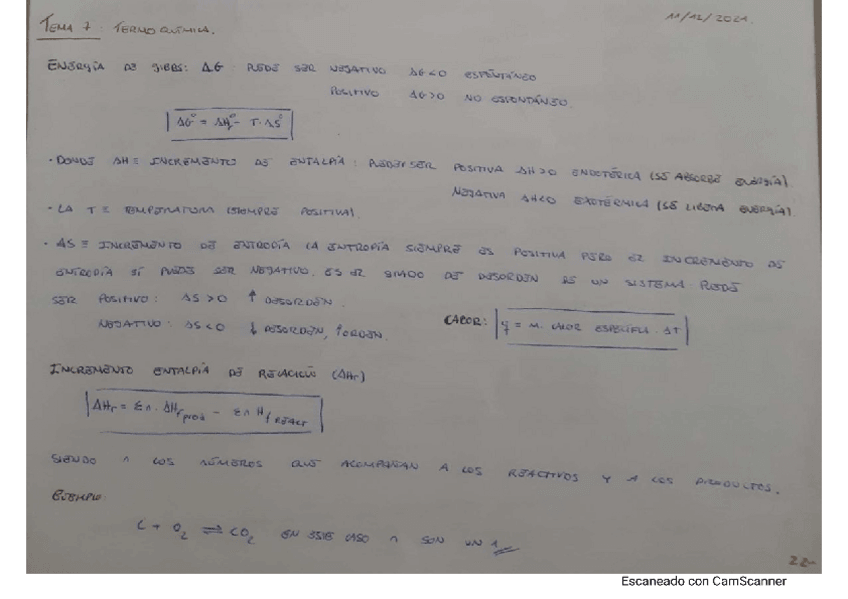 11/12/2021.
TEMA 7: TERMOQUÍMICA.
ENERGÍA DE GIBBS: ΔG: PUEDE SER NEGATIVO ΔG<0 ESPONTÁNEO
POSITIVO ΔG>0 NO ESPONTÁNEO.
ΔG° = ΔH° - T·ΔS°
· DONDE ΔH ≡ INCREMENTO DE ENTALPÍA: PUEDE SER POSITIVA ΔH>0 ENDOTÉRMICA (SE ABSORBE ENERGÍA)
NEGATIVA ΔH<0 EXOTÉRMICA (SE LIBERA ENERGÍA).
· LA T ≡ TEMPERATURA (SIEMPRE POSITIVA).
· ΔS ≡ INCREMENTO DE ENTROPÍA LA ENTROPÍA SIEMPRE ES POSITIVA PERO EL INCREMENTO DE
ENTROPÍA SÍ PUEDE SER NEGATIVO. ES EL GRADO DE DESORDEN DE UN SISTEMA PUEDE
SER POSITIVO: ΔS>0 ↑ DESORDEN.
NEGATIVO: ΔS<0 ↓ DESORDEN, ↑ORDEN.
CALOR: q = m. CALOR ESPECÍFICA. ΔT
INCREMENTO ENTALPÍA DE REACCIÓN (ΔHr)
ΔHr = Σn. ΔHf prod - Σn Hf REACT
SIENDO n LOS NÚMEROS QUE ACOMPAÑAN A LOS REACTIVOS Y A LOS PRODUCTOS.
EJEMPLO:
C + O2 ⇌ CO2 EN ESTE CASO n SON UN 1
22-
Escaneado con CamScanner